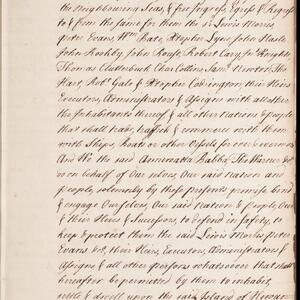 the Neighbouring Seas, & free Ingress Egress & Regress
to & from the same for them the sd. Lewis Morris,
Peter Evans, Wm. Bate, Stephen Lyon, John Hasle
John Rookby John Rouse, Robert Cary, Jno. Knight,
Thomas Clutterbuck Char. Collins, Saml. Newton, Tho.
Hart, Robt. Gale & Stephen Codrington, their Heirs
Executors, Administrators & Assigns with all other
the Inhabitants thereof & all other Nations & people
that shall trade, traffick & commerce with them
with Ships, Boats or other Vessels for ever & evermore
And We the said
on behalf of Our selves, Our said Nation and
people, solemnly by these presents promise bind
& engage Our selves, Our said Nation & People, Our
& their Heirs & Successors, to defend in safety, to
keep & protect them the said Lewis Morris, Peter
Evans &c., their Heirs, Executors, Administrators &
Assigns & all other persons whatsoever that shall
hereafter be permitted by them to inhabit,
settle & dwell upon the said Island of